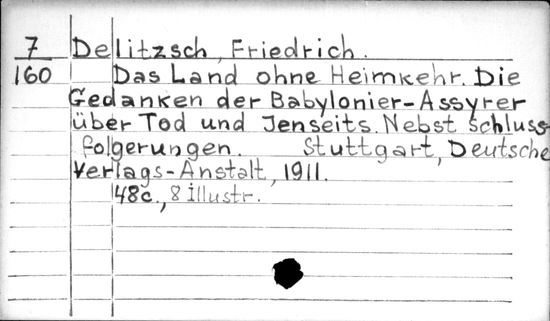 7 Delitzsch, Friedrich.
160 Das Land ohne Heimkehr. Die
Gedanken der Babylonier-Assyrer
über Tod und Jenseits. Nebst Schluss
folgerungen. Stuttgart, Deutsche
Verlags-Anstalt, 1911.
48c., 8 illustr.